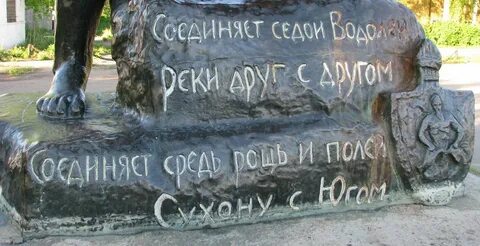 Соединяет седой Водолей
реки друг с другом
Соединяет средь рощь и полей
Сухону с Югом